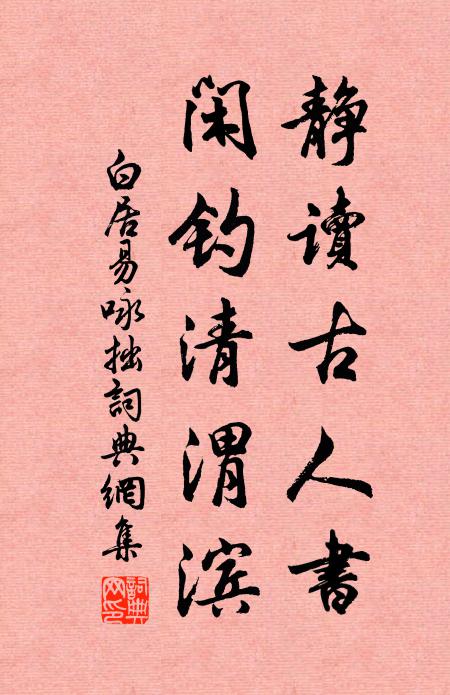 静讀古人書
闲钓清渭滨
白居易咏拙詞典網集
詞典网印